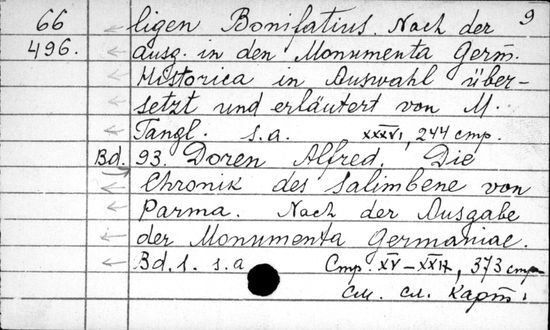 9
66 ligen Bonifatius. Nach der
496. ausg. in den Monumenta Germ.
Historica in Auswahl über-
setzt und erläutert von M.
Tangl. s.a. XXXVI, 244 стр.
Bd. 93. Doren Alfred. Die
Chronik des Salimbene von
Parma. Nach der Ausgabe
der Monumenta Germaniae.
Bd. 1. s.a Стр. 373 стр
см. сл. карт.